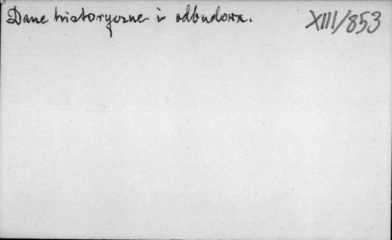 Dane historyczne i odbudowa.
XIII/853